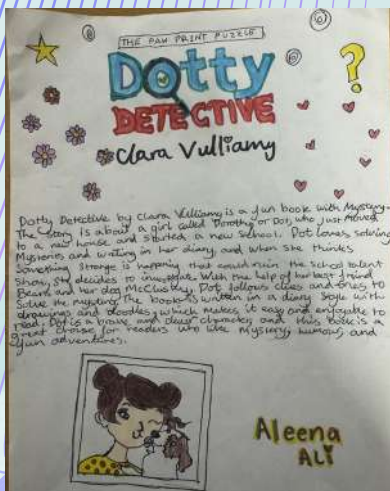 THE PAW PRINT PUZZLE
Dotty
DETECTIVE
Clara Vulliamy
?
Dotty Detective by Clara Vulliamy is a fun book with Mystery.
The story is about a girl called Dorothy or Dot, who just moved
to a new house and started a new school. Dot loves solving
Mysteries and writing in her diary, and when she thinks
Something strange is happening that could ruin the school talent
show, she decides to investigate. With the help of her best friend
Beans and her dog McClusky, Dot follows clues and tries to
Solve the mystery. The book is written in a diary style with
drawings and doodles, which makes it easy and enjoyable to
read. Dot is a brave and clever character, and this book is a
great choise for readers who like Mystery, humour, and
fun adventures.
Aleena
ALI